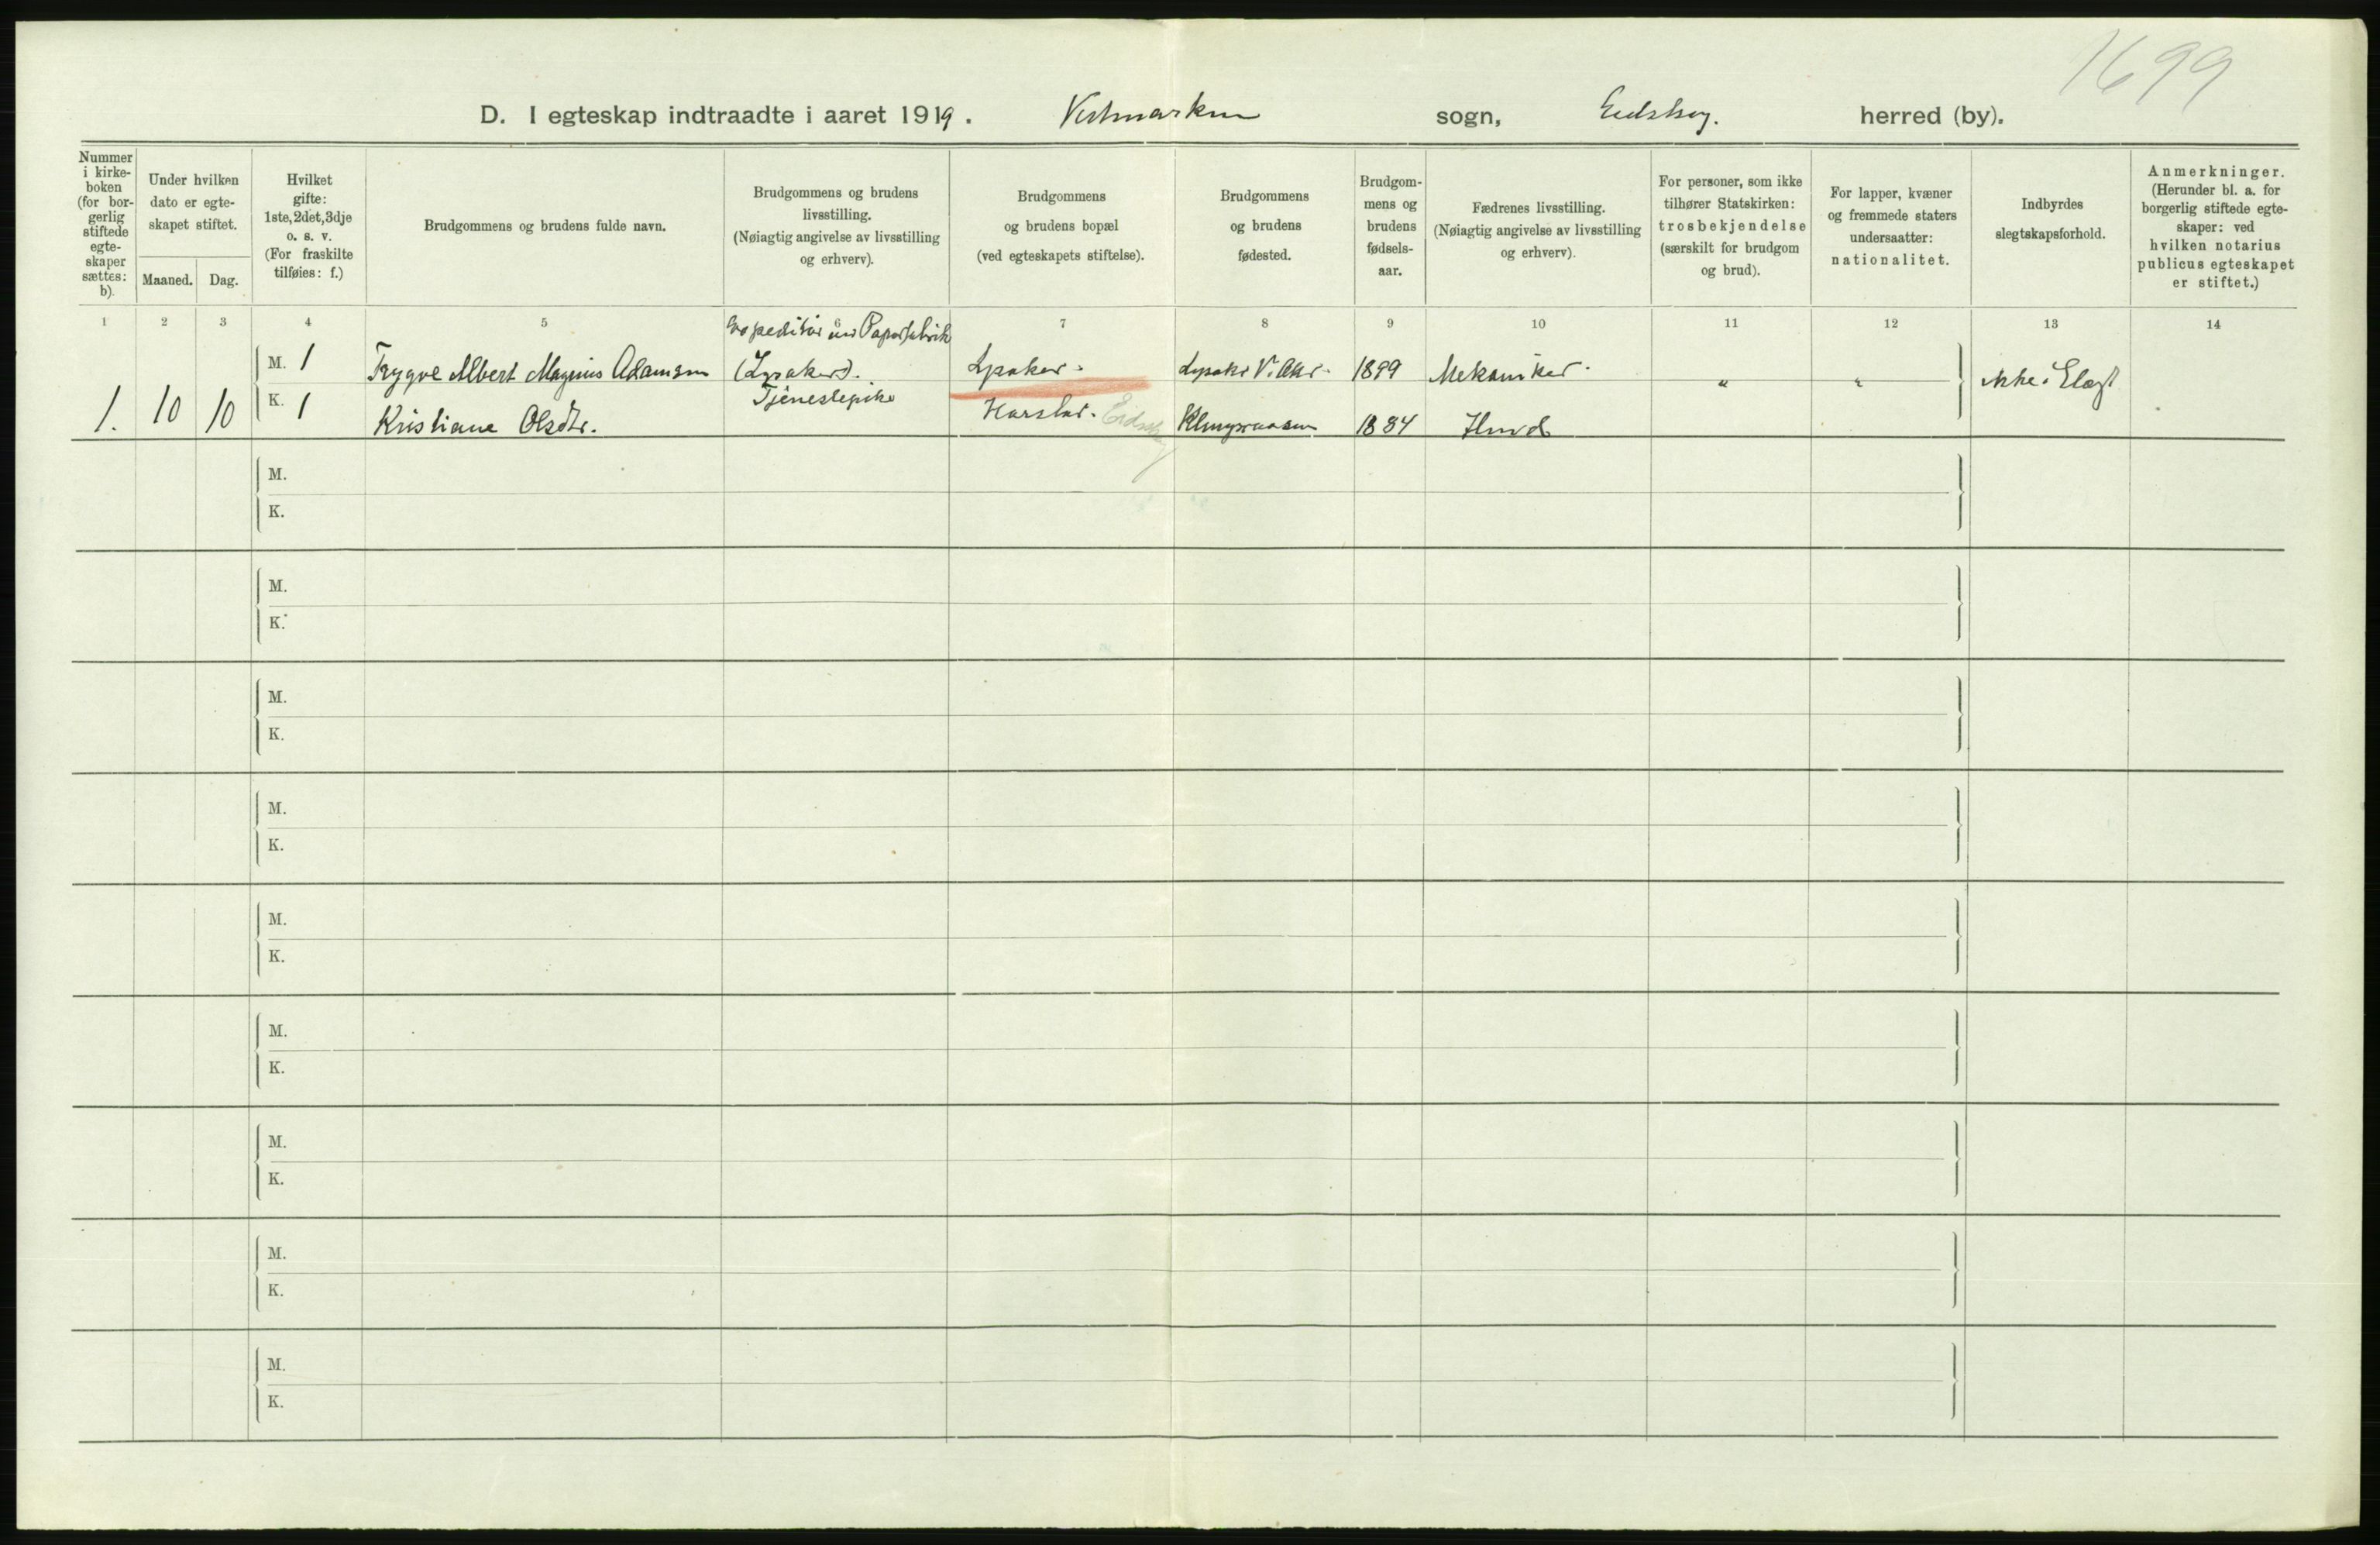 1699
D. I egteskap indtraadte i aaret 1919. Vestmarken sogn, Eidskog. herred (by).
Nummer i kirkeboken (for borgerlig stiftede egteskaper sættes: b).
Under hvilken dato er egteskapet stiftet.
Maaned. Dag.
Hvilket gifte: 1ste, 2det, 3dje o. s. v. (For fraskilte tilføies: f.)
Brudgommens og brudens fulde navn.
Brudgommens og brudens livsstilling. (Nøiagtig angivelse av livsstilling og erhverv).
Brudgommens og brudens bopæl (ved egteskapets stiftelse).
Brudgommens og brudens fødested.
Brudgommens og brudens fødselsaar.
Fædrenes livsstilling. (Nøiagtig angivelse av livsstilling og erhverv).
For personer, som ikke tilhører Statskirken: trosbekjendelse (særskilt for brudgom og brud).
For lapper, kvæner og fremmede staters undersaatter: nationalitet.
Indbyrdes slegtskapsforhold.
Anmerkninger. (Herunder bl. a. for borgerlig stiftede egteskaper: ved hvilken notarius publicus egteskapet er stiftet.)
1 2 3 4 5 6 7 8 9 10 11 12 13 14
Expeditør ved Papirfabrik
M. 1 Trygve Albert Magnus Adamsen (Lysaker). Lysaker. Lysaker V. Aker. 1899 Mekaniker. " " ikke i Slegt
1. 10 10 K. 1 Kristiane Olsdtr. Tjenestepike Eidskog 1884
M.
K.
M.
K.
M.
K.
M.
K.
M.
K.
M.
K.
M.
K.
M.
K.
M.
K.